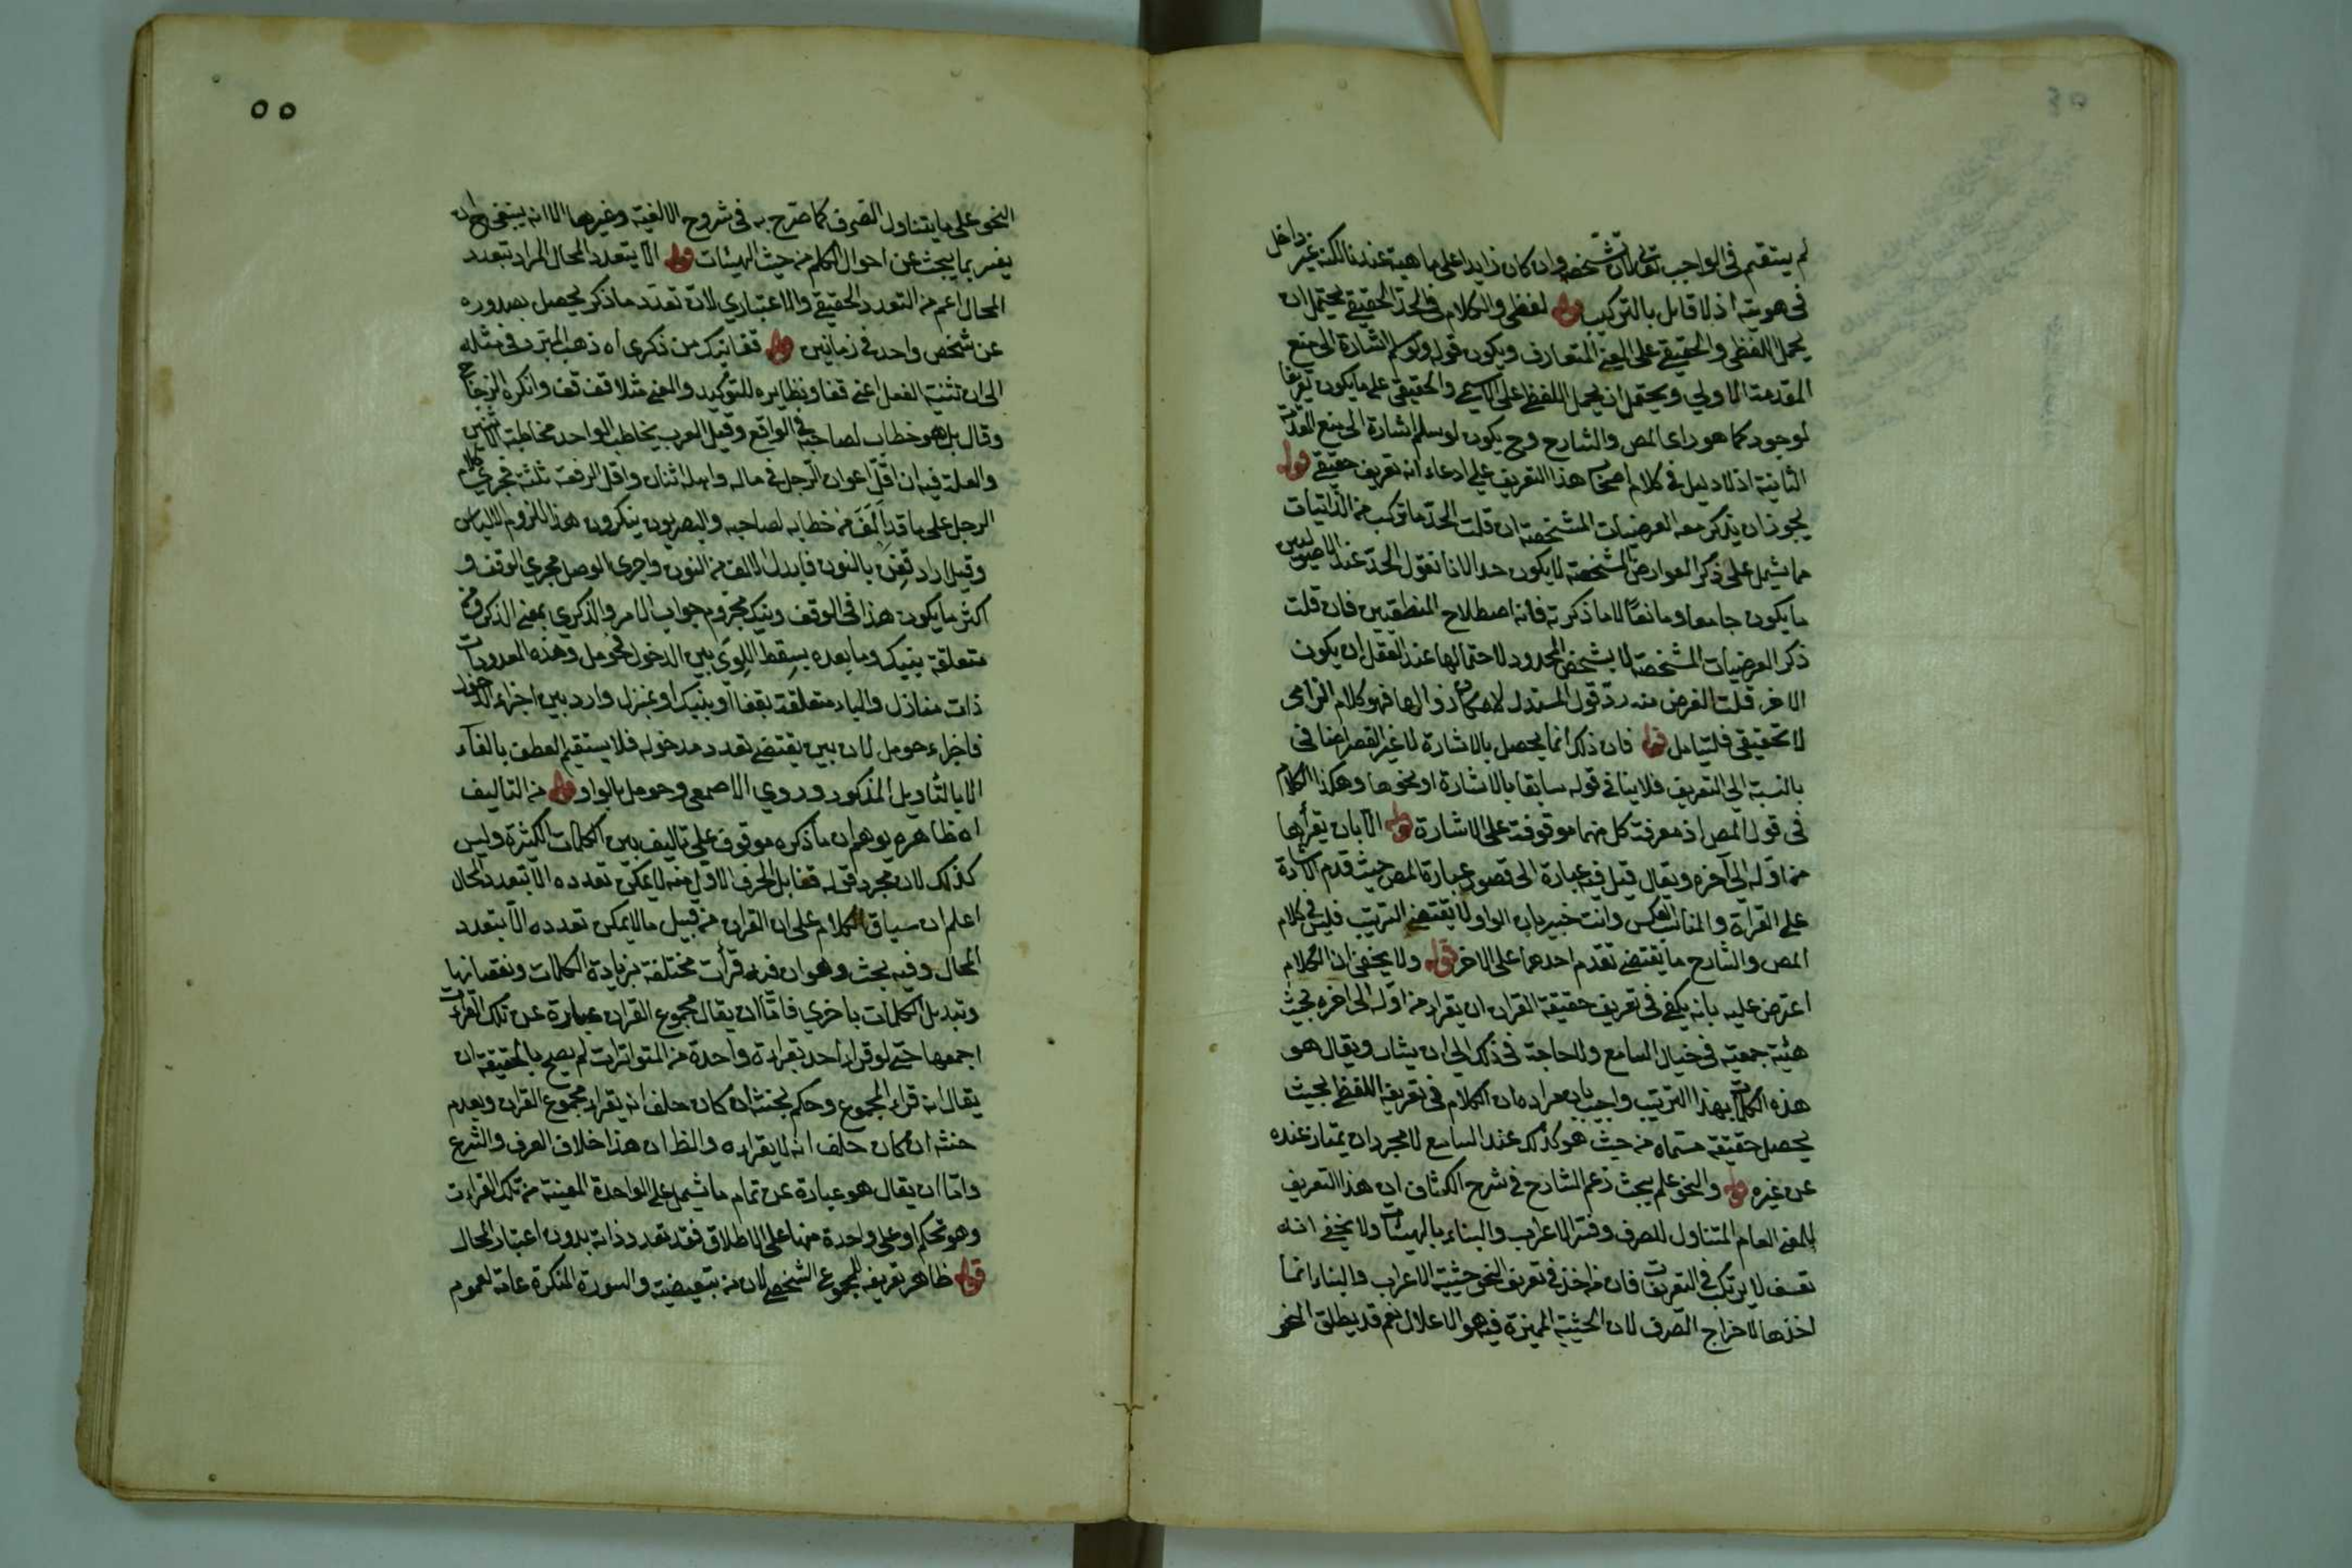 لم يستقم في الواجب تعالى لان تشخصه وان كان زايدا على ماهيته عندنا لكنه غير داخل
في هويته اذ لا قابل بالتركيب قوله لفظي والكلام في الحد الحقيقي يحتمل ان
يحمل اللفظي والحقيقي على المعنى المتعارف ويكون قوله ولو سلم اشارة الى منع
المقدمة الاولى ويحتمل ان يحمل اللفظي على الاسمي والحقيقي على ما يكون تعريفا
لموجود كما هو راى المص والشارح وح يكون لو سلم اشارة الى منع المقدمة
الثانية اذ لا دليل في كلام اصحاب هذا التعريف على ادعاء انه تعريف حقيقي قوله
يجوز ان يذكر معه العرضيات المشخصة ان قلت الحد ما تركب من الذاتيات
فما يشمل على ذكر العوارض المشخصة لا يكون حدا لانا نقول الحد عند الاصوليين
ما يكون جامعا ومانعا لا ما ذكرته فانه اصطلاح المنطقيين فان قلت
ذكر العرضيات المشخصة لا يشخص المحدود لاحتمالها عند العقل ان يكون
لاخر قلت الغرض منه رد قول المستدل لامكان زوالها فهو كلام الزامي
لا تحقيقي فليتامل قوله فان ذلك انما يحصل بالاشارة لا غير القصر اضافي
بالنسبة الى التعريف فلا ينافي قوله سابقا بالاشارة او نحوها وهكذا الكلام
في قول المص اذ معرفة كل منهما موقوفة على الاشارة قوله الا بان يقرأها
من اوله الى آخره ويقال قيل فيه عبارة الى قصور عبارة المص حيث قدم الاشارة
على القراءة والمناسب العكس وانت خبير بان الواو لا يقتضي الترتيب فليس في كلام
المص والشارح ما يقتضي تقدم احدهما على الاخر قوله ولا يخفى ان الكلام
اعترض عليه بانه يكفي في تعريف حقيقة القران ان يقرا من اوله الى اخره بحيث
هيئة جمعية في خيال السامع ولا حاجة في ذلك الى ان يشار ويقال هو
هذه الكلمات بهذا الترتيب واجيب بان مراده ان الكلام في تعريف اللفظ بحيث
يحصل حقيقة مسماه من حيث هو كذلك عند السامع لا مجرد ان يمتاز عنده
عن غيره قوله والنحو علم يبحث زعم الشارح في شرح الكشاف ان هذا التعريف
للمعنى العام المتناول للصرف وفسر الاعراب والبناء بالهيئات ولا يخفى انه
تعسف لا يرتكب في التعريفات فان من اخذ في تعريف النحو حيثية الاعراب والبناء انما
اخذها لاخراج الصرف لان الحيثية المميزة فيه هو الاعلال نعم قد يطلق النحو
٥٥
النحو على ما يتناول الصرف كما صرح به في شروح الالفية وغيرها الا انه ينبغي ح ان
يفسر بما يبحث عن احوال الكلم من حيث الهيئات قوله الا بتعدد المحال المراد بتعدد
المحال اعم من التعدد الحقيقي والاعتباري لان تعدد ما ذكر يحصل بصدوره
عن شخص واحد في زمانين قوله قفا نبك من ذكرى اه ذهب المبرد في مثله
الى ان تثنية الفعل اعني قفا ونظايره للتوكيد والمعنى مثلا قف قف وانكره الزجاج
وقال بل هو خطاب لصاحبيه في الواقع وقيل العرب يخاطب الواحد مخاطبة الاثنين
والعلة فيه ان اقل اعوان الرجل في ماله واهله اثنان واقل الرفقة ثلثة فجرى كلام
الرجل على ما قد الف من خطابه لصاحبه والبصريون ينكرون هذا للزوم الالباس
وقيل اراد قفن بالنون فابدل الالف من النون واجرى الوصل مجرى الوقف و
اكثر ما يكون هذا في الوقف ونبك مجزوم جواب الامر والذكرى بمعنى الذكر ومن
متعلقة بنبك وما بعده بسقط اللوى بين الدخول فحومل وهذه المعدودات
ذات منازل والباء متعلقة بقفا او بنبك او بمنزل وارد بين اجزاء الدخول
فاجزاء حومل لان بين يقتضي تعدد مدخوله فلا يستقيم العطف بالفاء
الا بالتاويل المذكور وروي الاصمعي وحومل بالواو قوله من التاليف
اه ظاهره يوهم ان ما ذكره موقوف على تاليف بين الكلمات الكثيرة وليس
كذلك لان مجرد قوله قفا بل الحرف الاول منه لا يمكن تعدده الا بتعدد المحال
اعلم ان سياق الكلام على ان القران من قبيل ما لا يمكن تعدده الا بتعدد
المحال وفيه بحث وهو ان فيه قرأت مختلفة بزيادة الكلمات ونقصانها
وتبديل الكلمات باخرى فاما ان يقال مجموع القران عبارة عن تلك القراءات
اجمعها حتى لو قرا احد بقراءة واحدة من المتواترات لم يصح بالحقيقة ان
يقال انه قراء المجموع وحكم بحنثه ان كان حلف انه يقرا مجموع القران وبعدم
حنثه ان كان حلف انه لا يقراءه والظ ان هذا خلاف العرف والشرع
واما ان يقال هو عبارة عن تمام ما يشمل على الواحدة المعينة من تلك القراءت
وهو تحكم او على واحدة منها على الاطلاق فقد تعدد ذاته بدون اعتبار المحال
قوله ظاهر تعريفه للمجموع الشخصي لان من تبعيضية والسورة المنكرة عامة لعموم